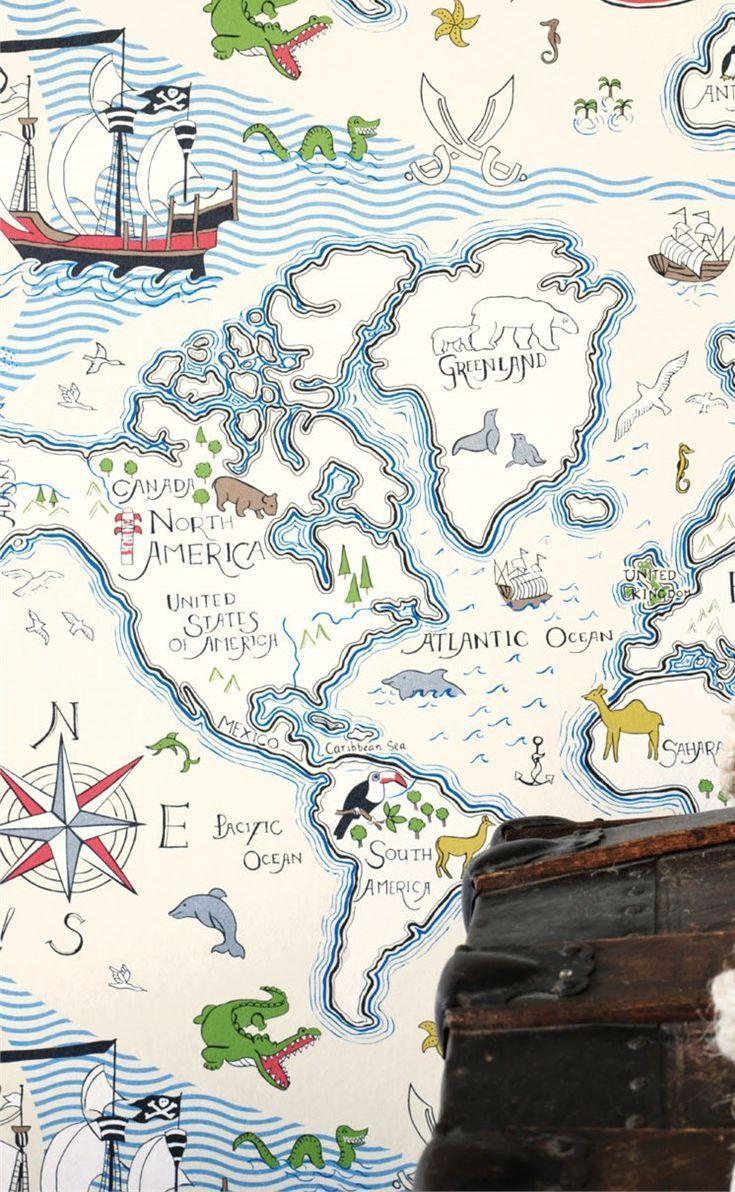 ANT
GREENLAND
CANADA
NORTH
AMERICA
UNITED
STATES
OF AMERICA
UNITED
KINGDOM
ATLANTIC OCEAN
MEXICO
Caribbean Sea
SAHARA
N
E
S
PACIFIC
OCEAN
SOUTH
AMERICA